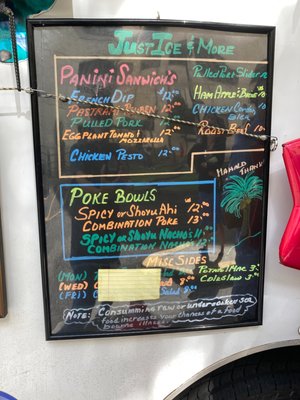 JustIce & More
Panini Sandwich's
French Dip $12.00
Pastrami Reuben 12.00
Pulled Pork 12.00
Eggplant Tomato & Mozzarella 12.00
Chicken Pesto 12.00
Pulled Pork Slider 10
Ham Apple & Brie 10
Chicken
Roast Beef 10
Mahalo
Poke Bowls
Spicy or Shoyu Ahi 12.00
Combination Poke 13.00
Spicy or Shoyu Nacho's 11.00
Combination Nacho's 12.00
Misc Sides
(Mon)
(Wed)
(Fri) Salad 8.00
Potato Mac 3.
Coleslaw 3.
Note: Consumming raw or undercooked
food increases your chances of a food
bourne illness.